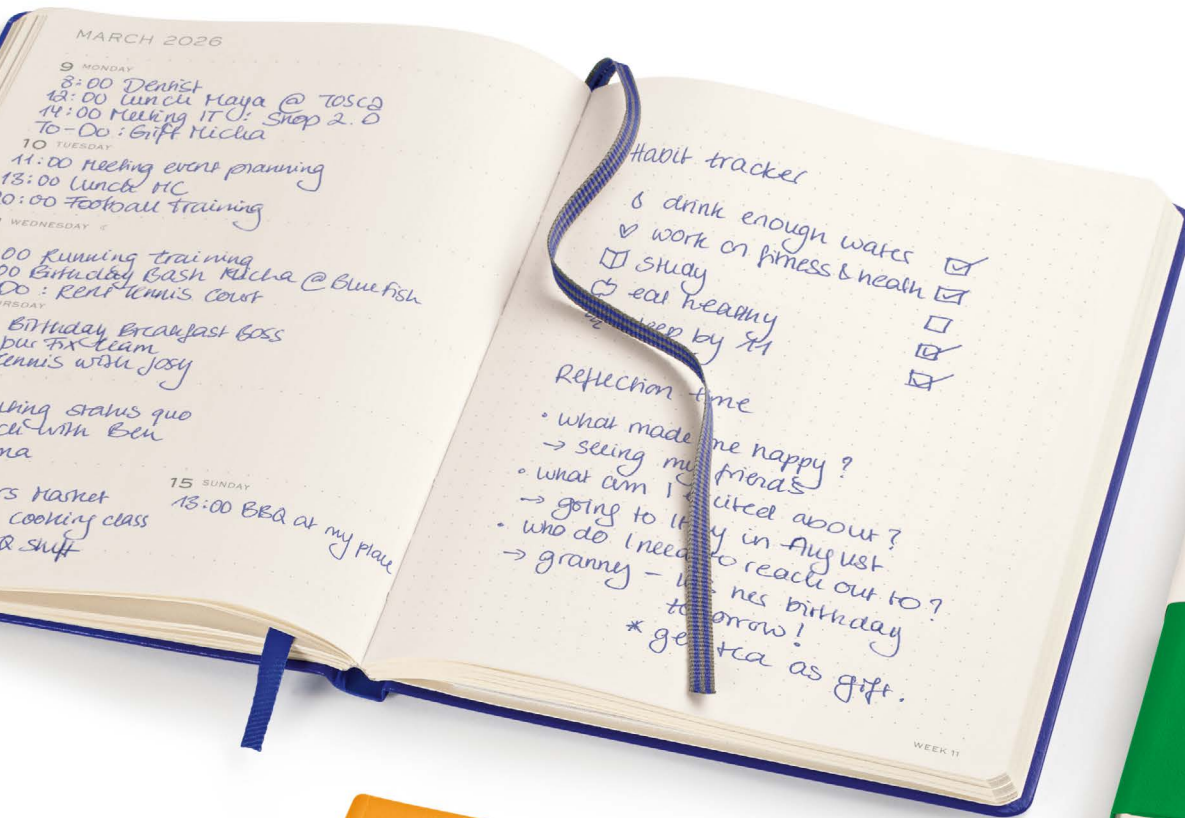 MARCH 2026
9 MONDAY
8:00 Dentist
12:00 Lunch Maya @ TOSCA
14:00 Meeting IT: Shop 2.0
To-Do: Gift Micha
10 TUESDAY
11:00 Meeting event planning
13:00 Lunch MC
0:00 Football training
WEDNESDAY
00 Running training
00 Birthday Bash Micha @ Bluefish
Do: Rent Tennis court
RSDAY
Birthday Breakfast Boss
our Fix team
ennis with Josy
status quo
with Ben
rs Market
cooking class
Q stuff
15 SUNDAY
13:00 BBQ at my place
Habit tracker
drink enough water
work on fitness & health
study
eat healthy
by 11
Reflection time
• what made me happy?
→ seeing my friends
• what am I excited about?
→ going to Italy in August
• who do I need to reach out to?
→ granny – it's her birthday
tomorrow!
* get tea as gift.
WEEK 11